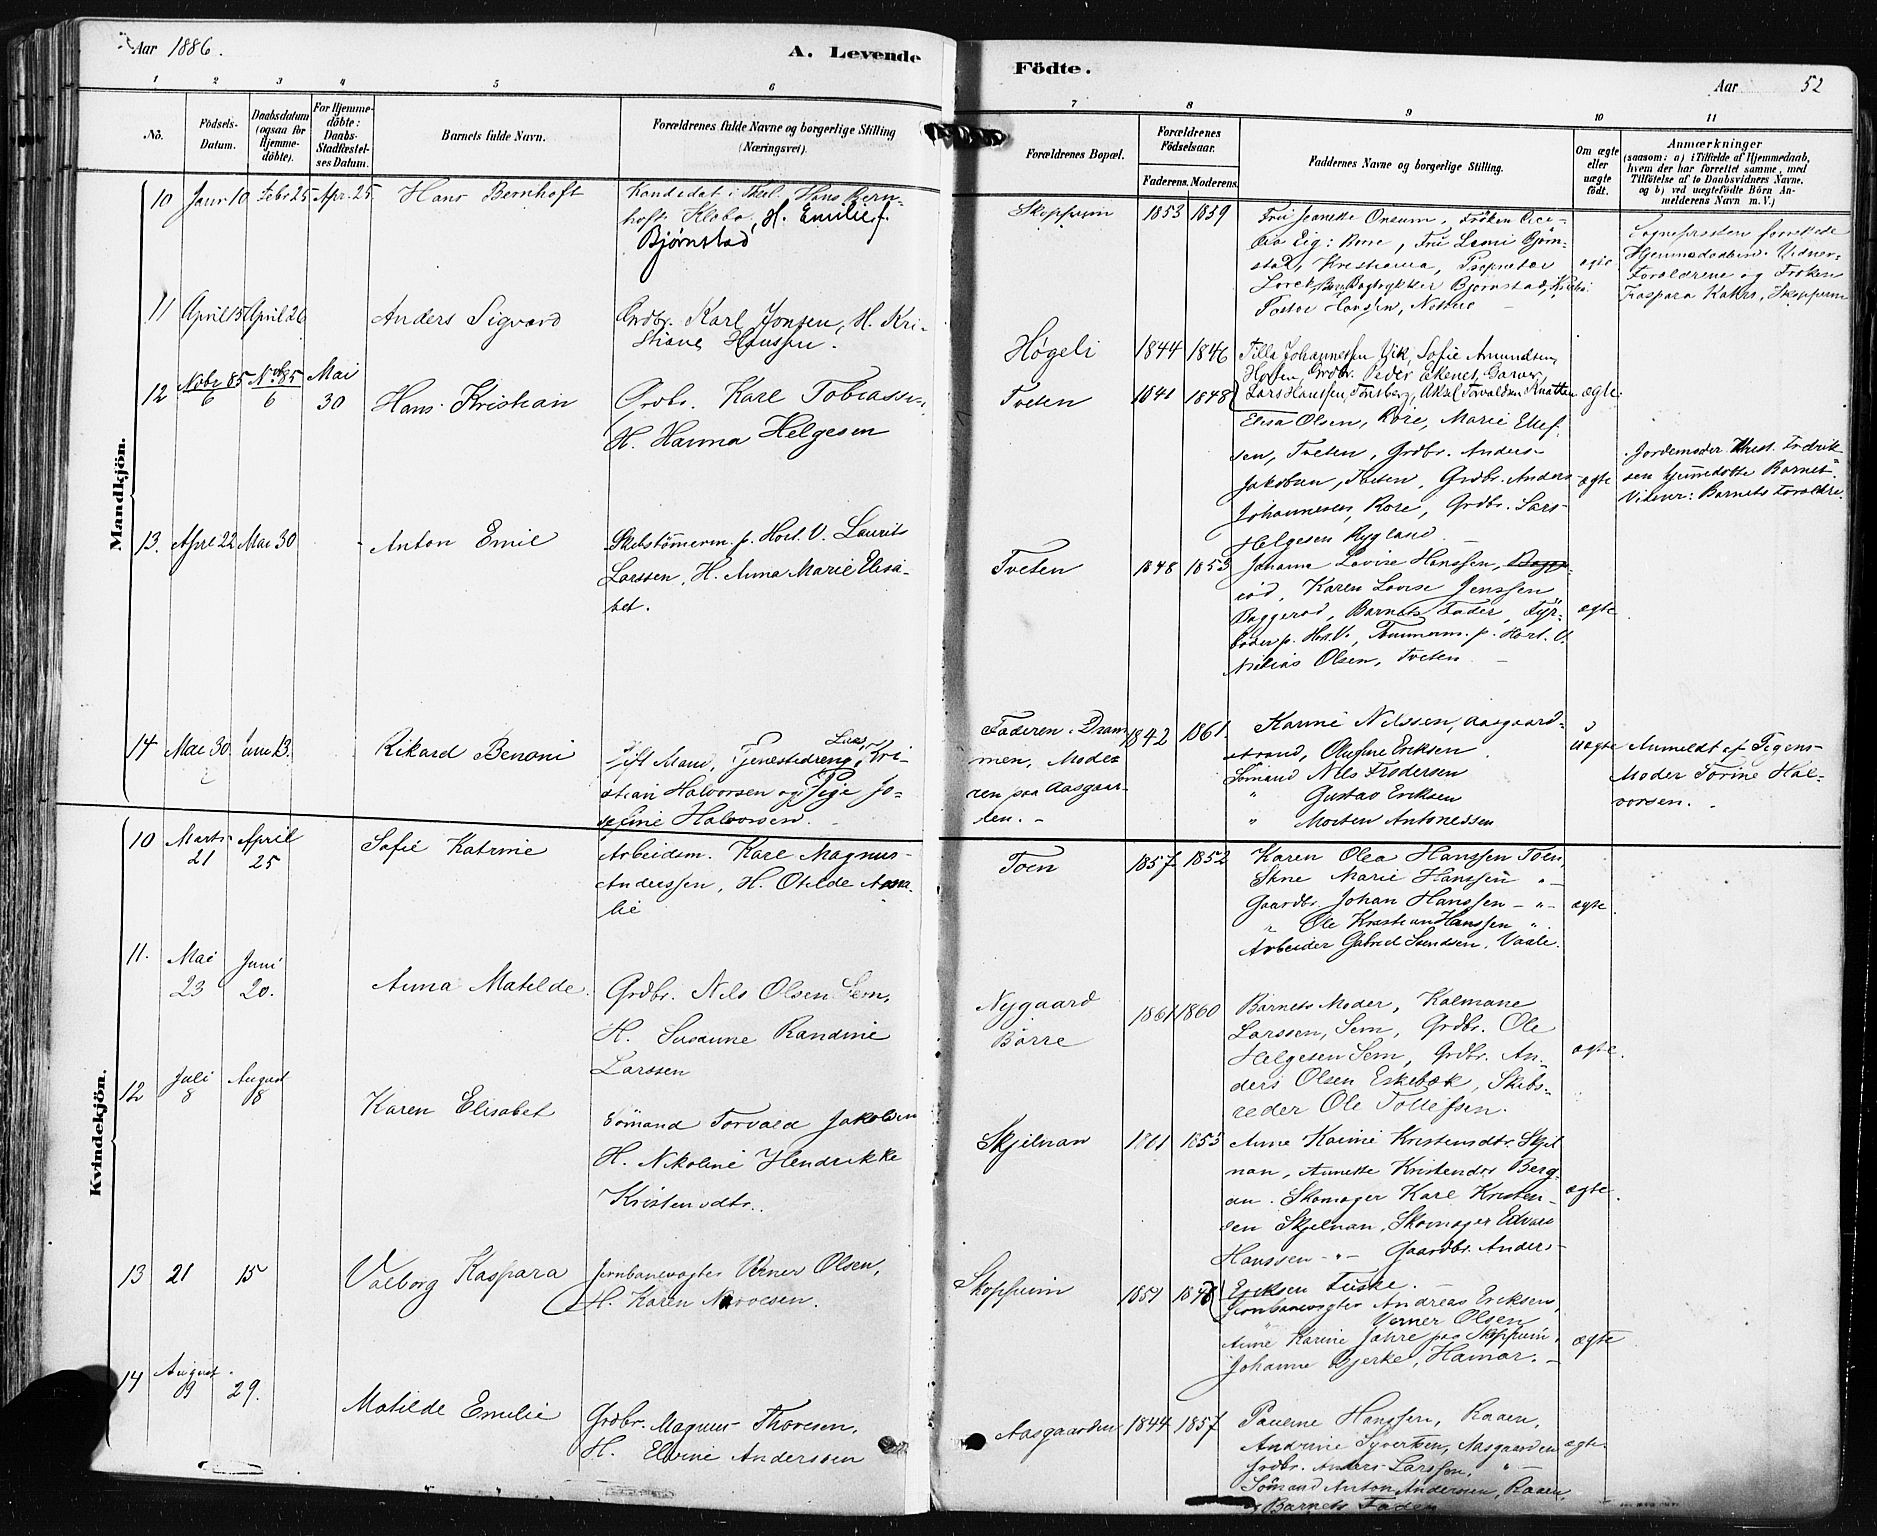 Aar 1886.
A. Levende
Födte.
Aar
52
1 2 3 4 5 6
7 8 9 10 11
No.
Födsels-Datum.
Daabsdatum (ogsaa för Hjemme-döbte).
For Hjemme-döbte: Daabs-Stadfæstel-ses Datum.
Barnets fulde Navn.
Forældrenes fulde Navne og borgerlige Stilling
(Næringsvei).
Forældrenes Bopæl.
Forældrenes Födselsaar.
Faderens. Moderens.
Faddernes Navne og borgerlige Stilling.
Om ægte eller uægte födt.
Anmærkninger
(saasom: a) i Tilfælde af Hjemmedaab,
hvem der har forrettet samme, med
Tilföielse af to Daabsvidners Navne,
og b) ved uægtefödte Börn An-
melderens Navn m. V.)
Mandkjön.
10 Janr 10 Febr 25 Apr. 25
Hans Bernhoft
Kandidat i Hans Bern-
hoft Klebo, H. Emilie f.
Bjørnstad
Skoppum
1853 1859
Fru Jeanette Onsum, Frøken
Fru Bjørn-
stad, Kristiania, Proprietær
Bogtrykker Bjørnstad,
ægte
Sognepræsten forrettede
Hjemmedaaben. Vidner:
Forældrene og Frøken
Kaspara Skoppum
11 April 15 April 26
Anders Sigvard
Grdbr. Karl Jonsen, H. Kri-
stiane Hanssen.
Høgeli
1844 1846
Tilla Johannessen Vik, Sofie Amundsen,
Horten, Grdbr. Peder
Lars Hanssen, Tønsberg, Aksel Torvaldsen Knatten
ægte
12 Novbr 85 6 Nov. 85 6 Mai 30
Hans Kristian
Grdbr. Karl Tobiassen,
H. Hanna Helgesen
Tveten
1841 1848
Elisa Olsen, Rore, Marie Ellef-
sen, Tveten, Grdbr. Anders
Jakobsen, Tveten, Grdbr. Anders
Johannesen, Rore, Grdbr. Lars
Helgesen Rygland.
ægte
Jordemoder Fredrik-
sen hjemmedøbte Barnet
Vidner: Barnets Forældre.
13. April 22 Mai 30
Anton Emil
Skibstømerm. p. Hort. V. Laurits
Larssen, H. Anna Marie Elisa-
bet.
Tveten
1848 1853
Johanne Lovise Hanssen,
rød, Karen Lovise Jenssen
Baggerød, Barnets Fader, Fyr-
bøder p. Hort. V., Tømmerm. p. Hort. V.
Olsen, Tveten
ægte.
14 Mai 30. Juni 13.
Rikard Benoni
Gift Mand, Tjenestedreng Kri-
stian Halvorsen og Pige Jo-
sefine Halvorsen.
Faderen i Dram-
men, Mode-
ren paa Aasgaar-
den. -
1842 1861
Karine Nilssen, Aasgaard-
strand, Olufine Eriksen
Sømand Nils Fredersen
" Gustav Eriksen
" Morten Antonessen
uægte
Anmeldt af Pigens
Moder Torine Hal-
vorsen.
Kvindekjön.
10 Marts 21 April 25
Sofie Katrine
Arbeidsm. Karl Magnus
Anderssen, H. Otilde Ama-
lie
Toen
1857 1852
Karen Olea Hanssen Toen
Marie Hanssen "
Gaardbr. Johan Hanssen - " -
" Ole Kristian Hanssen "
Arbeider Gabriel Svendsen, Vaale.
ægte.
11. Mai 23 Juni 20.
Anna Matilde
Grdbr. Nils Olsen Sem,
H. Susanne Randine
Larssen
Nygaard
Børre
1861 1860
Barnets Moder, Kalmane
Larssen, Sem, Grdbr. Ole
Helgesen Sem, Grdbr. An-
ders Olsen Eskebæk, Skibs-
reder Ole Tollefsen.
ægte.
12 Juli 8 August 8
Karen Elisabet
Sømand Torvald Jakobsen
H. Nikoline Hendrikke
Kristensdtr.
Skjelnan
1855
Anne Karine Kristensdtr. Skjel-
nan, Annette Kristensdtr Berg-
an. Skomager Karl Kristen-
sen Skjelnan, Skomager Edvard
Hanssen - " - Gaardbr. Anders
Eriksen
ægte.
13 21 15
Valborg Kaspara
Jernbanevogter Verner Olsen,
H. Karen
Skoppum
1851 1848
Jernbanevogter Andreas Eriksen,
Verner Olsen
Anne Karine Jahre paa Skoppum,
Johanne Bjerke, Hamar. -
ægte
14 August 19 29.
Matilde Emilie
Grdbr. Magnus Thoresen,
H. Elvine Anderssen
Aasgaarden
1844 1857
Pauline Hanssen, Raaen,
Andrine Syvertsen, Aasgaarden
Grdbr. Anders Larssen, " -
Sømand Anton Andersen, Raaen,
Barnets Fader
ægte